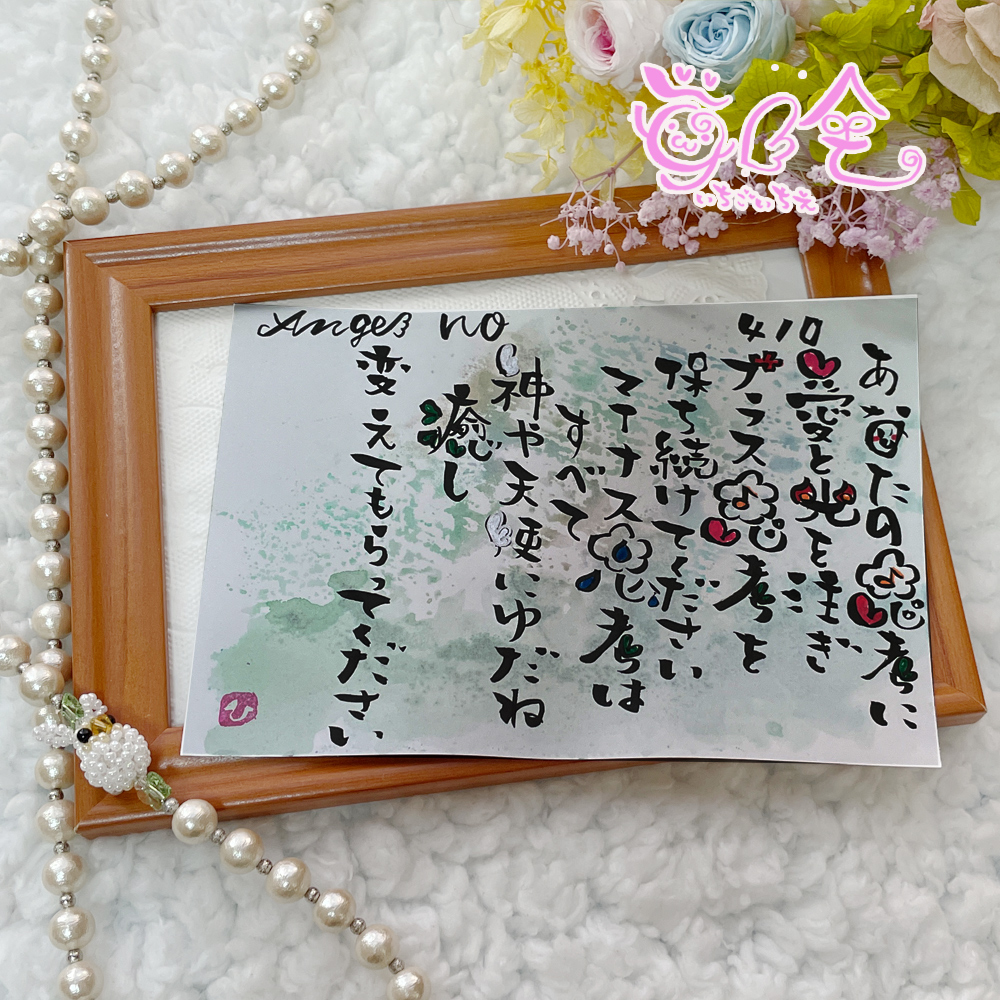 Angel no 410
あ母たの思考に
愛と光を注ぎ
プラス思考を
保ち続けてください
マイナス思考は
すべて
神や天使にゆだね
癒し
変えてもらってください
ひ
いちごいちえ